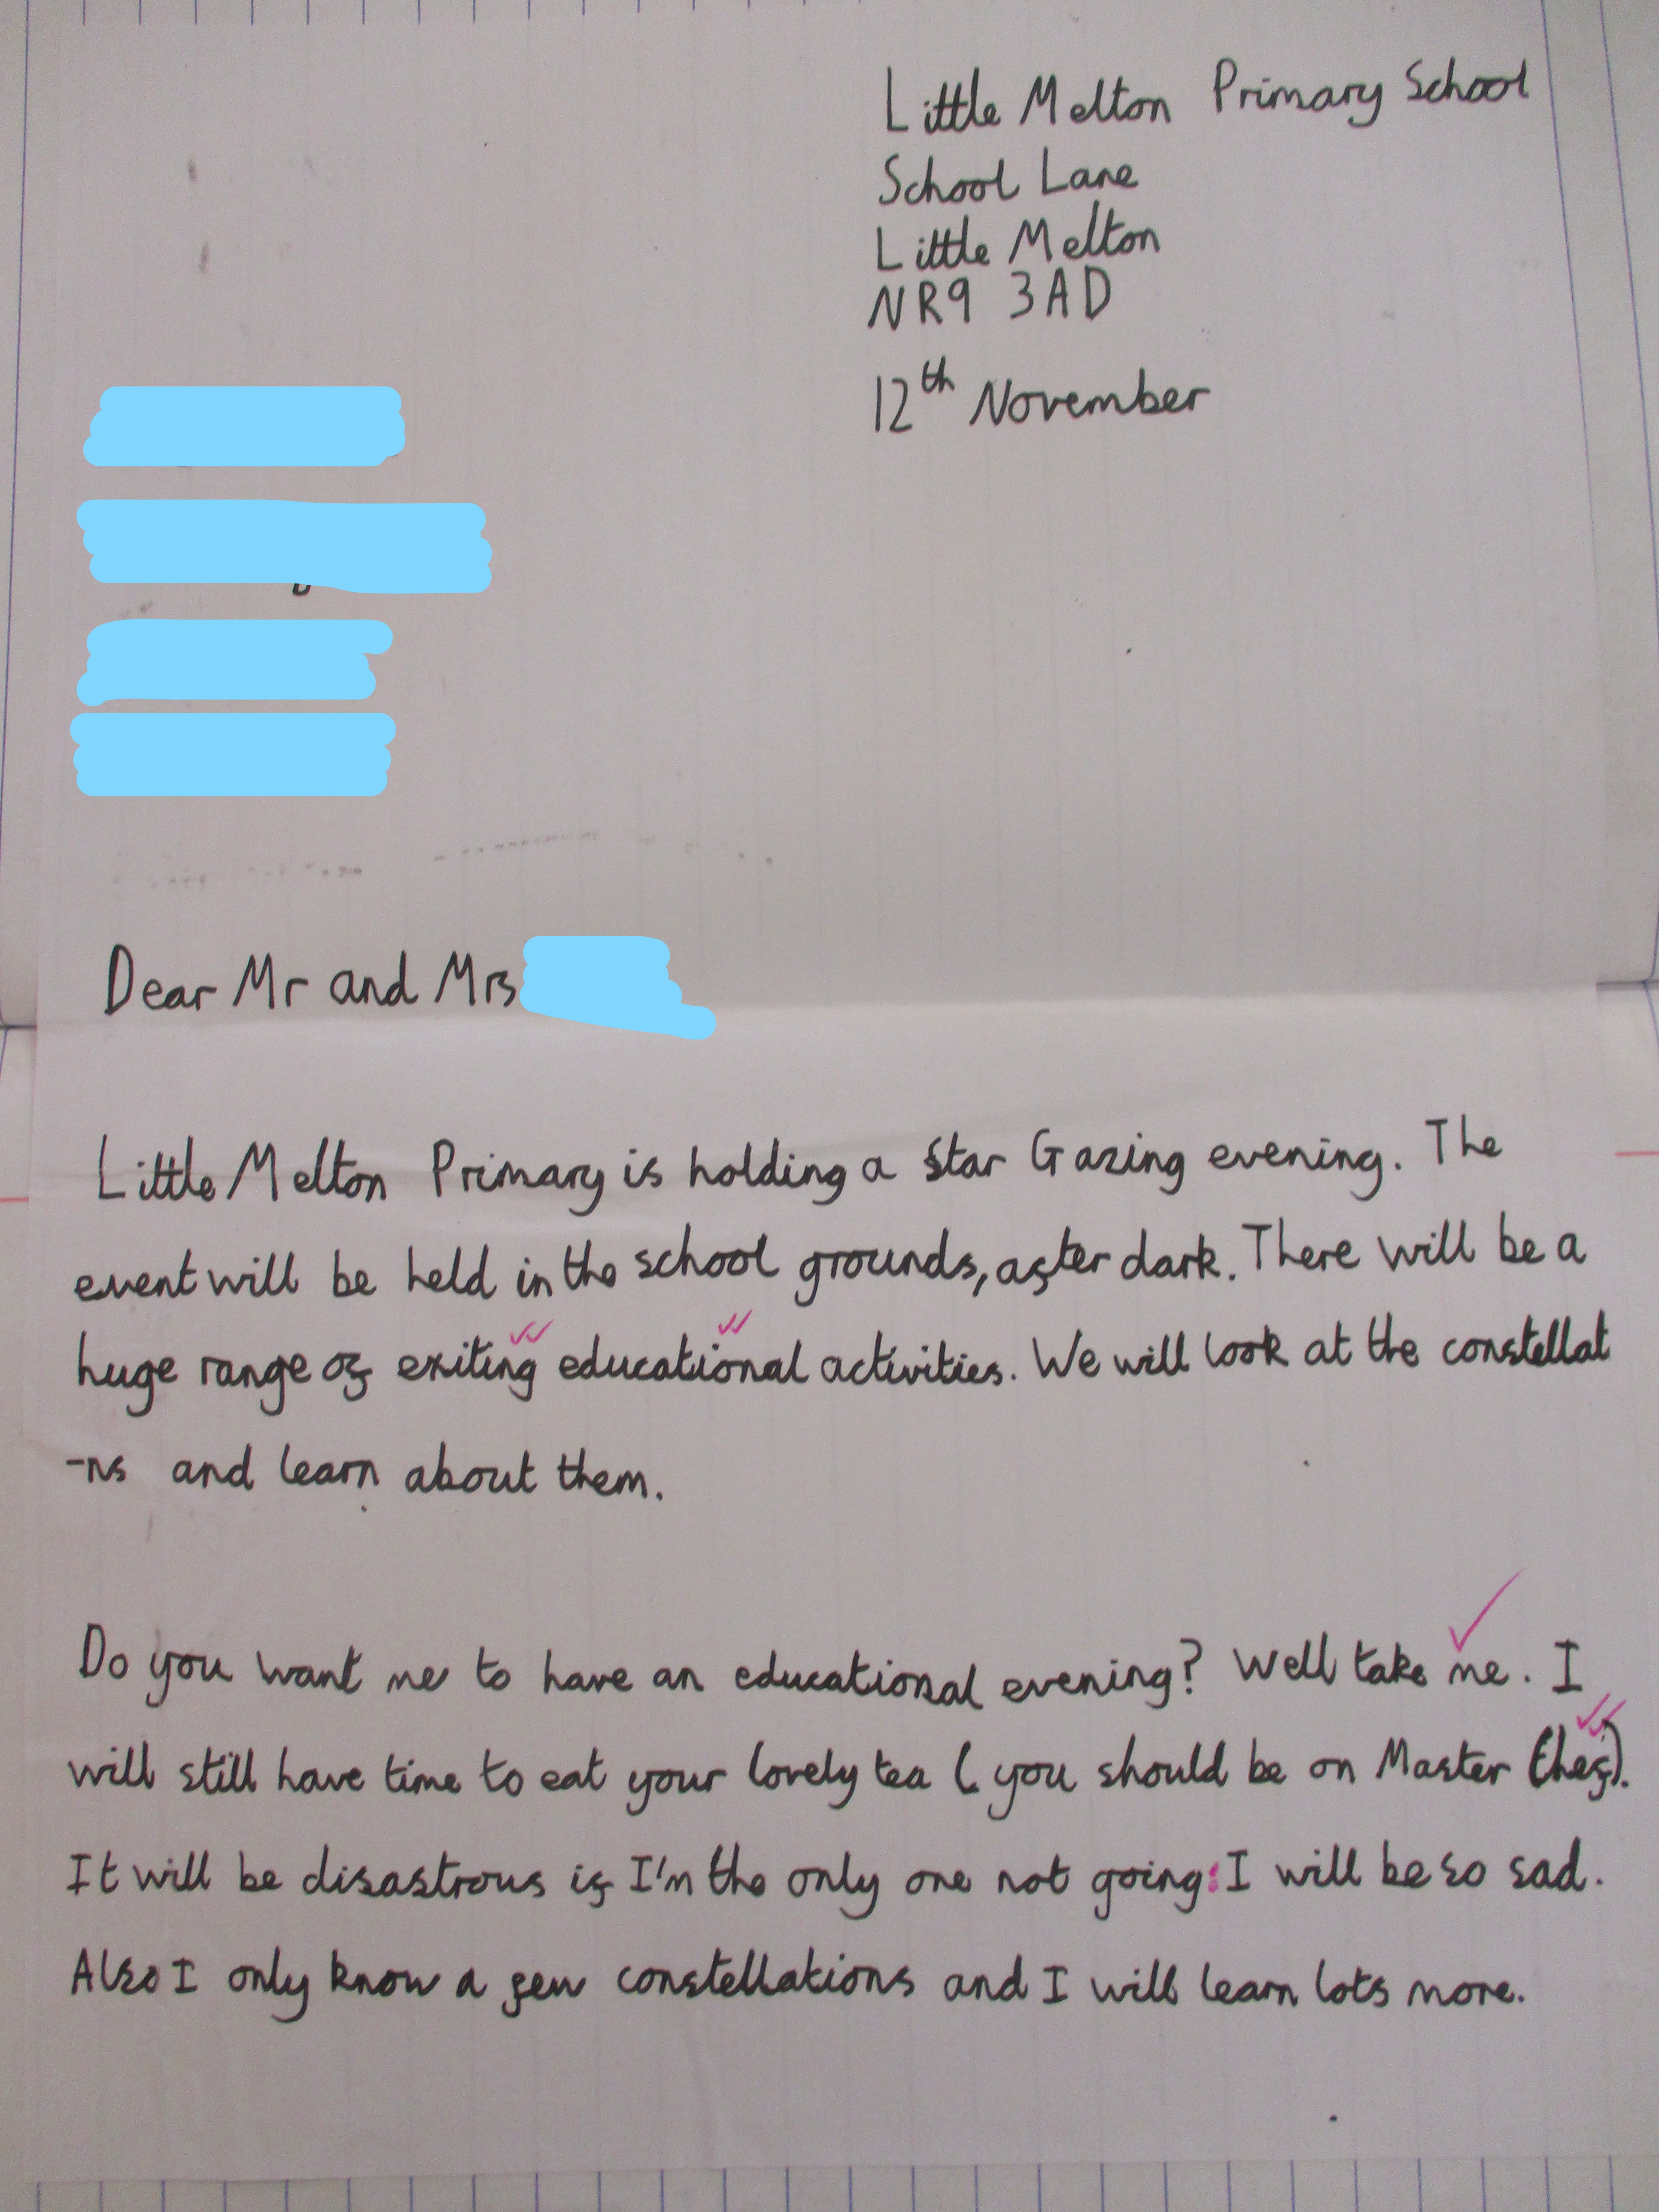 Little Melton Primary School
School Lane
Little Melton
NR9 3AD
12th November
Dear Mr and Mrs
Little Melton Primary is holding a Star Gazing evening. The
event will be held in the school grounds, after dark. There will be a
huge range of exiting educational activities. We will look at the constellat
-ns and learn about them.
Do you want me to have an educational evening? Well take me. I
will still have time to eat your lovely tea (you should be on Master Chef).
It will be disastrous if I'm the only one not going: I will be so sad.
Also I only know a few constellations and I will learn lots more.